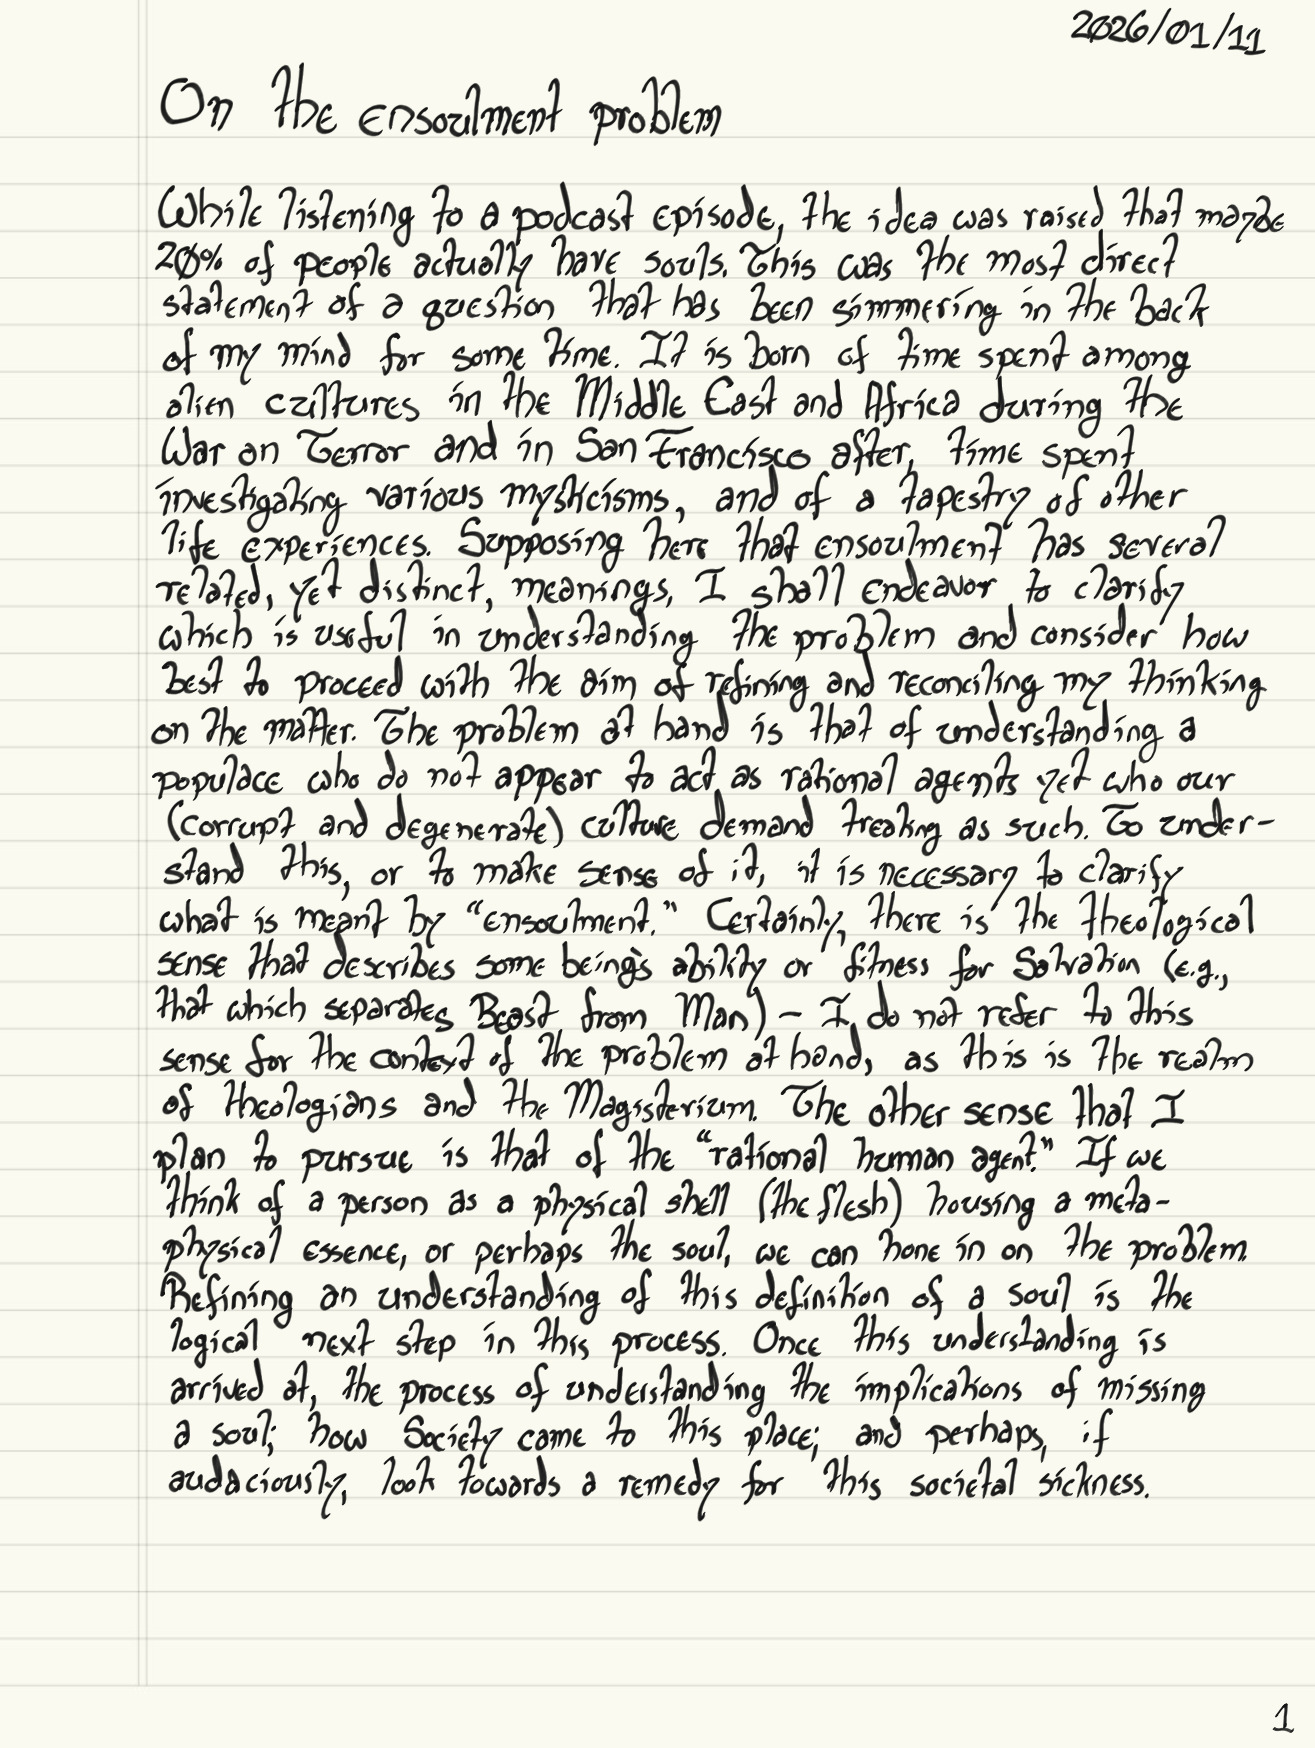 2026/01/11
On the ensoulment problem
While listening to a podcast episode, the idea was raised that maybe
20% of people actually have souls. This was the most direct
statement of a question that has been simmering in the back
of my mind for some time. It is born of time spent among
alien cultures in the Middle East and Africa during the
War on Terror and in San Francisco after, time spent
investigating various mysticisms, and of a tapestry of other
life experiences. Supposing here that ensoulment has several
related, yet distinct, meanings, I shall endeavor to clarify
which is useful in understanding the problem and consider how
best to proceed with the aim of refining and reconciling my thinking
on the matter. The problem at hand is that of understanding a
populace who do not appear to act as rational agents yet who our
(corrupt and degenerate) culture demand treating as such. To under-
stand this, or to make sense of it, it is necessary to clarify
what is meant by “ensoulment.” Certainly, there is the theological
sense that describes some being's ability or fitness for Salvation (e.g.,
that which separates Beast from Man) - I do not refer to this
sense for the context of the problem at hand, as this is the realm
of theologians and the Magisterium. The other sense that I
plan to pursue is that of the “rational human agent.” If we
think of a person as a physical shell (the flesh) housing a meta-
physical essence, or perhaps the soul, we can hone in on the problem.
Refining an understanding of this definition of a soul is the
logical next step in this process. Once this understanding is
arrived at, the process of understanding the implications of missing
a soul; how Society came to this place; and perhaps, if
audaciously, look towards a remedy for this societal sickness.
1